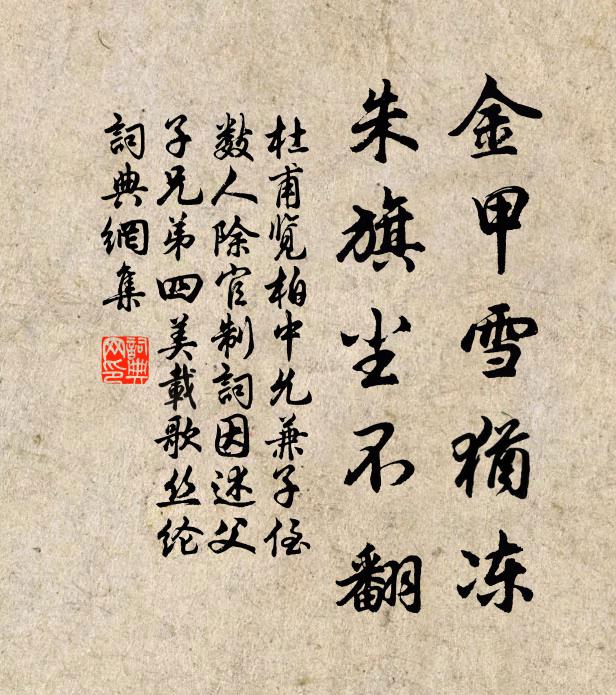 金甲雪猶冻
朱旗尘不翻
杜甫览柏中允兼子侄
数人除官制詞因述父
子兄弟四美載歌丝纶
詞典網集
詞典網印